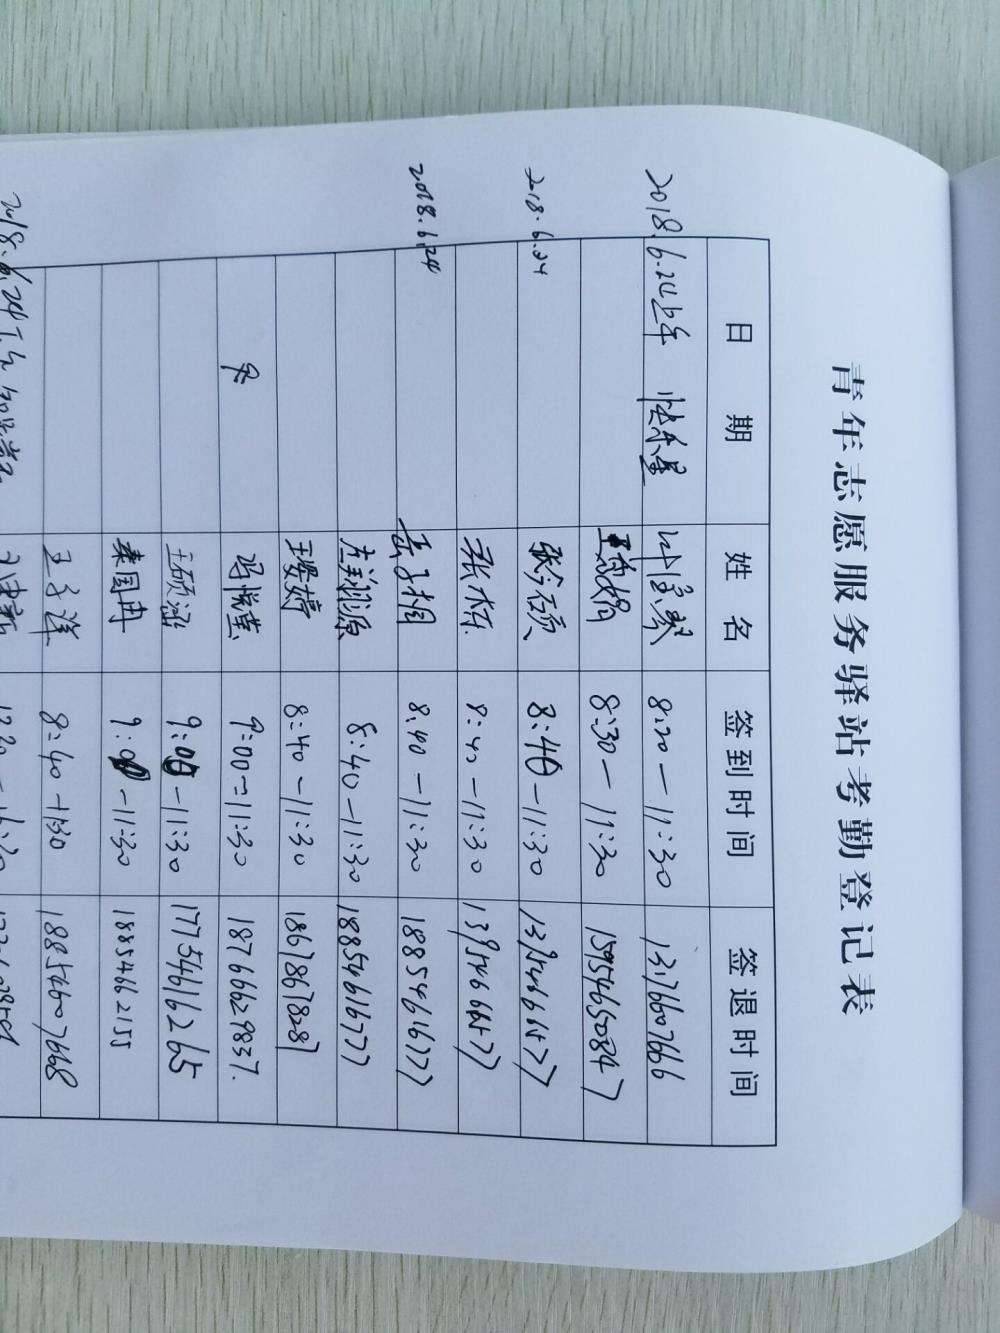 青年志愿服务驿站考勤登记表
日期 姓名 签到时间 签退时间
2018.6.24上午 快乐星 8:20—11:30 13176607666
8:30—11:30 15954650847
2018.6.24 张今页 8:40—11:30 13954666577
张栋 8:40—11:30 13954666577
2018.6.24 岳子相 8:40—11:30 18854616777
左翔源 8:40—11:30 18854616777
王婷 8:40—11:30 18678678287
冯悦莹 9:00—11:30 18766629837.
王硕涵 9:00—11:30 17754616265
秦国冉 9:00—11:30 18854662155
王子洋 8:40—11:30 18854607668
2018.6.24下午